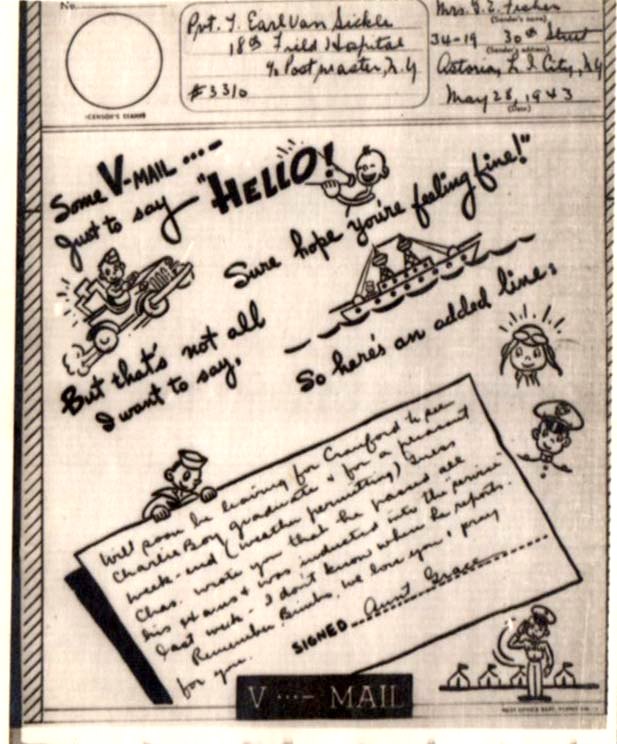 No.
Pvt. T. Earl Van Sickle
18th Field Hospital
% Postmaster, N.Y
#3310
Mrs. G. E. Fisher
(Sender's name)
34-19 30th Street
(Sender's address)
Astoria, L. I. City, N.Y
May 28, 1943
(Date)
(CENSOR'S STAMP)
Some V-MAIL ...-
Just to say "HELLO!
Sure hope you're feeling fine!"
But that's not all
I want to say.
So here's an added line:
Will soon be leaving for Cranford to see
Charlie Boy graduate & for a pleasant
week-end (weather permitting) Guess
Chas. wrote you that he passed all
his exams & was inducted into the service
last week - I don't know when he reports.
Remember, we love you & pray
for you.
SIGNED Aunt Grace
V ...- MAIL